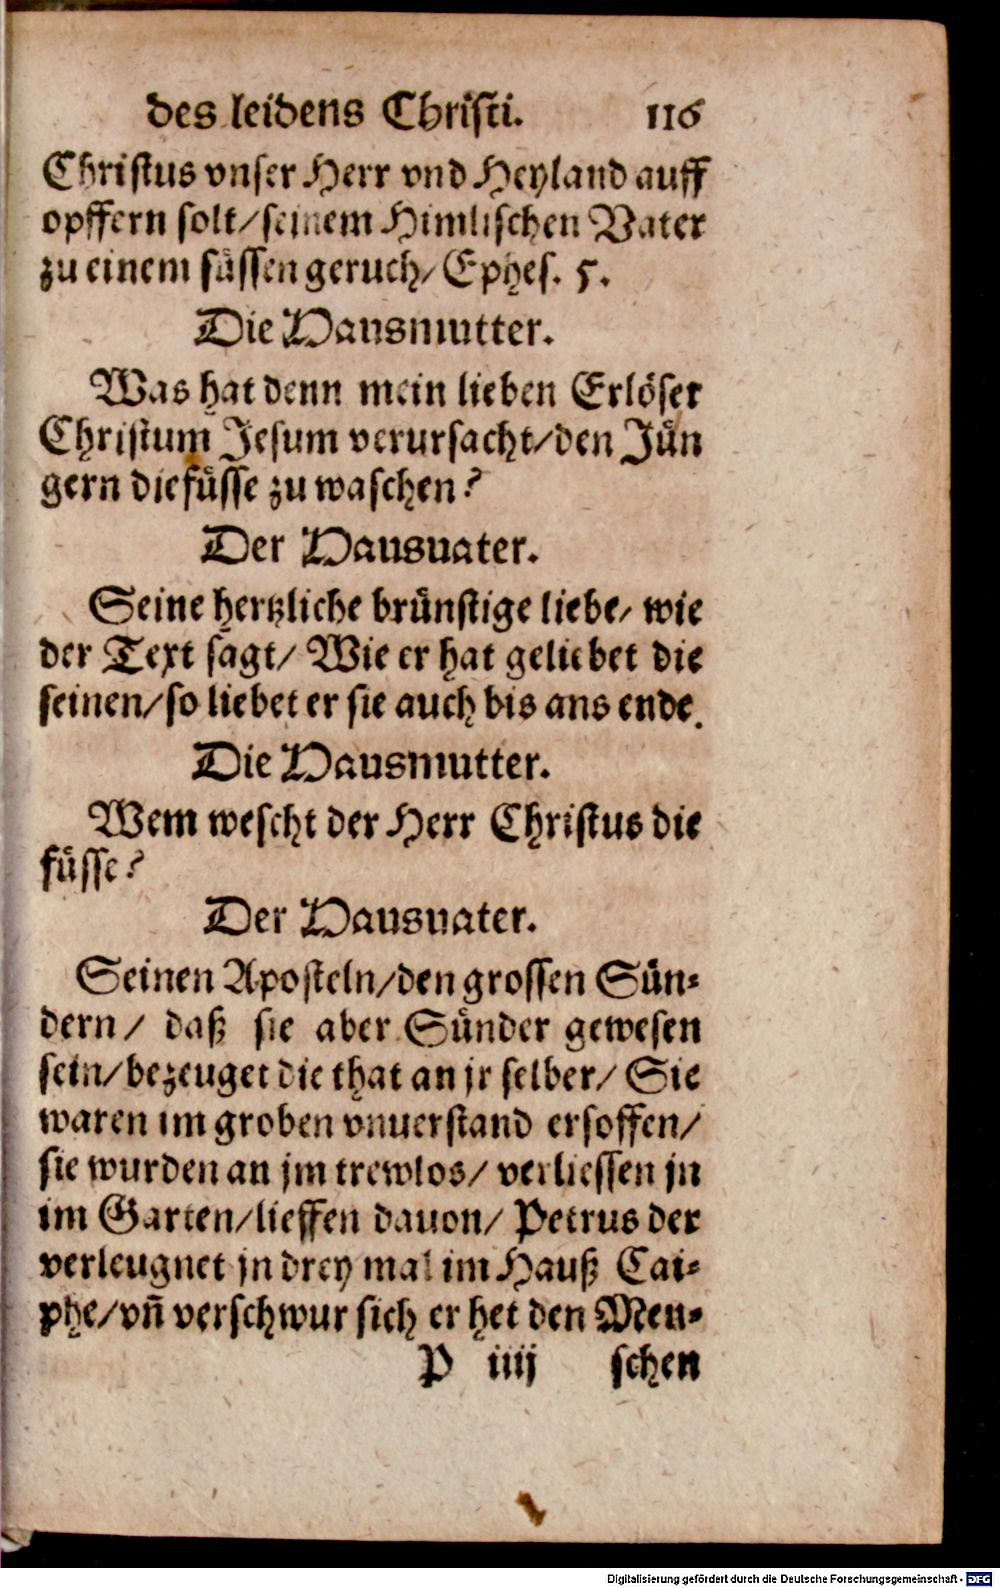 des leidens Christi. 116
Christus vnser Herr vnd Heyland auff
opffern solt/seinem Himlischen Vater
zu einem süssen geruch/Ephes. 5.
Die Hausmutter.
Was hat denn mein lieben Erlöser
Christum Jesum verursacht/den Jün
gern die füsse zu waschen?
Der Hausuater.
Seine hertzliche brünstige liebe/ wie
der Text sagt/ Wie er hat geliebet die
seinen/so liebet er sie auch bis ans ende.
Die Hausmutter.
Wem wescht der Herr Christus die
füsse?
Der Hausuater.
Seinen Aposteln/den grossen Sün-
dern/ daß sie aber Sünder gewesen
sein/bezeuget die that an jr selber/ Sie
waren im groben vnuerstand ersoffen/
sie wurden an jm trewlos/ verliessen jn
im Garten/lieffen dauon/ Petrus der
verleugnet jn drey mal im Hauß Cai-
phe/vn̄ verschwur sich er het den Men-
P iiij schen
Digitalisierung gefördert durch die Deutsche Forschungsgemeinschaft - DFG